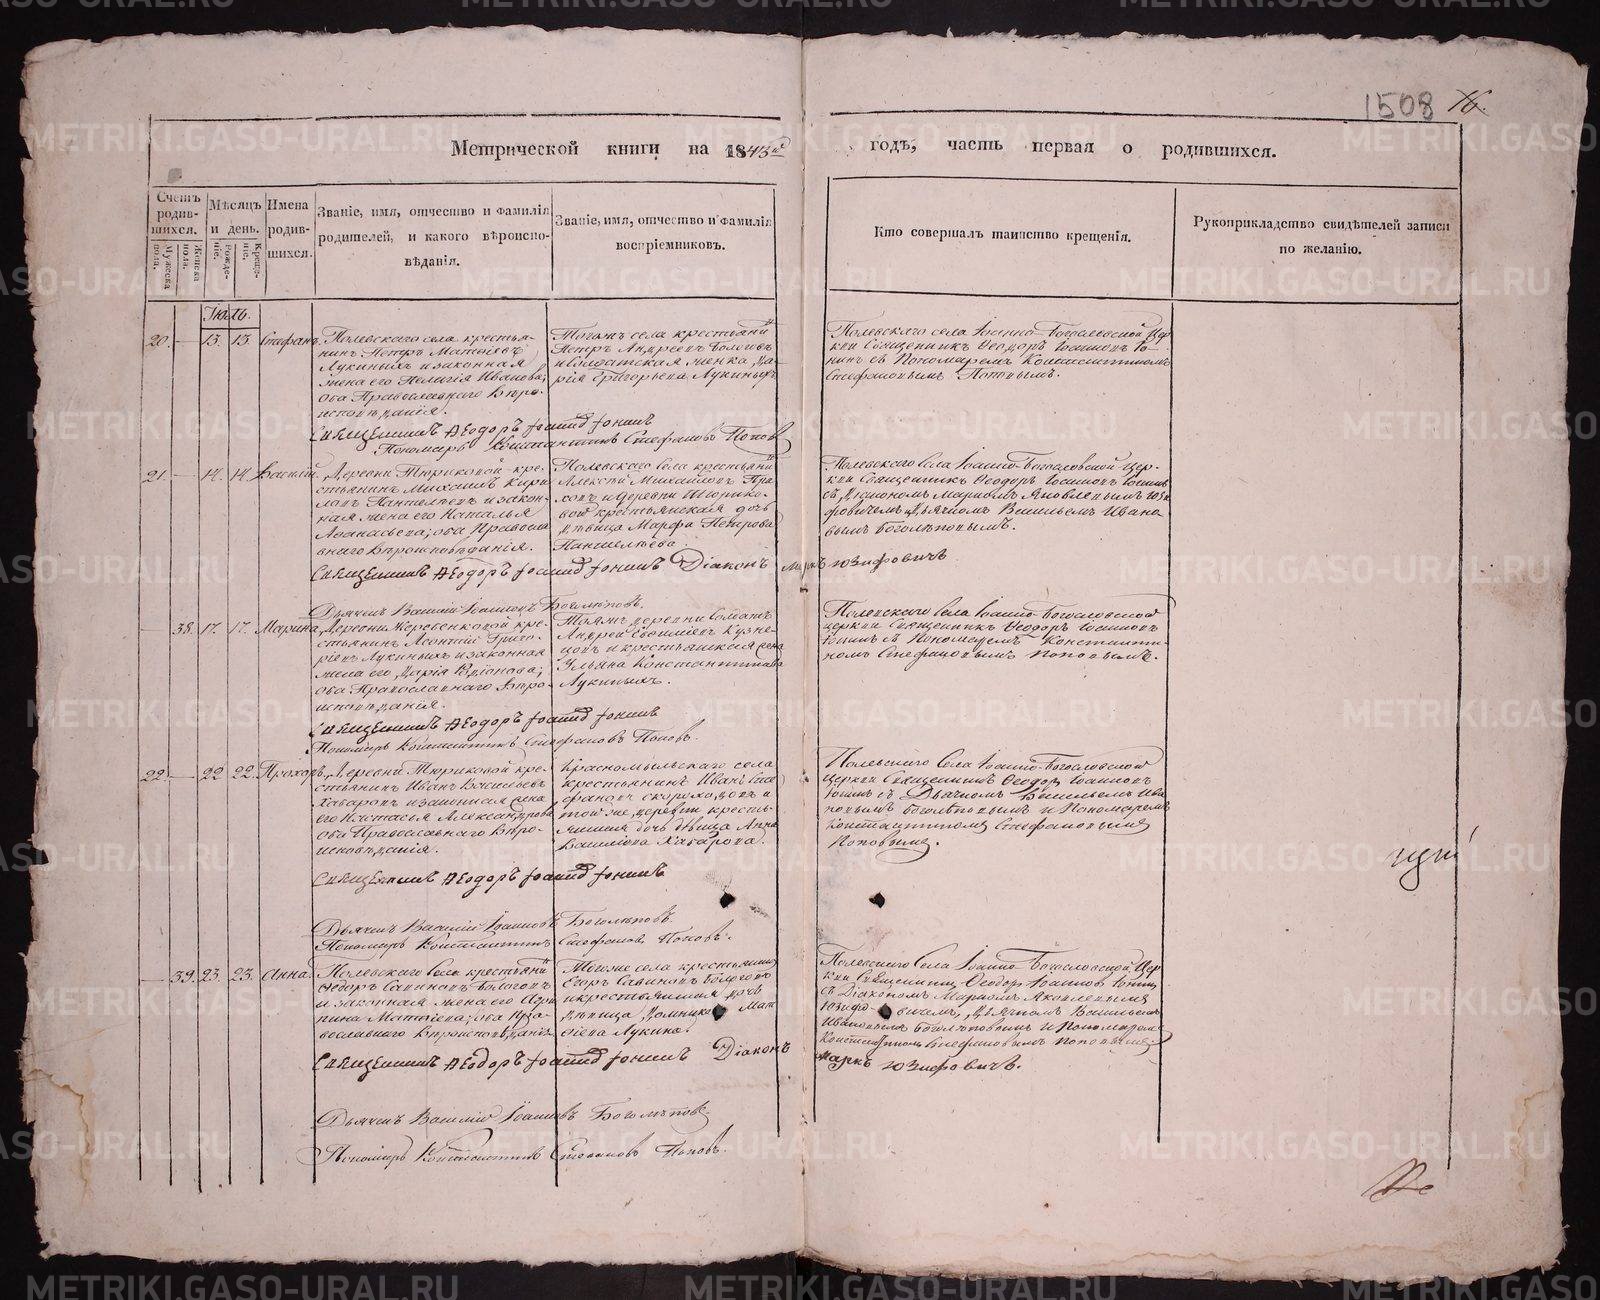 1508 16.
Метрической книги на 1843й годъ, часть первая о родившихся.
Счетъ родив-шихся.
Мужеска пола.
Женска пола.
Мѣсяцъ и день.
Рожде-ніе.
Креще-ніе.
Имена родив-шихся.
Званіе, имя, отчество и фамилія
родителей, и какого вѣроиспо-
вѣданія.
Званіе, имя, отчество и фамилія
воспріемниковъ.
Кто совершалъ таинство крещенія.
Рукоприкладство свидѣтелей записи
по желанію.
Іюль.
20. — 13. 13. Стефанъ.
Полевскаго села крестья-
нинъ Петръ Матвіевъ
Лукиныхъ и законная
жена его Пелагія Иванова;
оба Православнаго Вѣро-
исповѣданія.
Тогожъ села крестьянинъ
Петръ Андреевъ Бологовъ
и Солдатская женка, Да-
рія Григорьева Лукиныхъ
Полевскаго села Іоанно-Богословской Цер-
кви Священникъ Ѳеодоръ Іоанновъ Іо-
нинъ съ Пономаремъ Константиномъ
Стефановымъ Поповымъ.
Священникъ Ѳеодоръ Іоанновъ Іонинъ
Пономарь Константинъ Стефановъ Поповъ
21. — 14. 14. Василій.
Деревни Тюриковой кре-
стьянинъ Михаилъ Кири-
ловъ Пантелѣевъ и закон-
ная жена его Наталья
Аѳанасьева; оба Правосла-
внаго Вѣроисповѣданія.
Полевскаго Села крестьянинъ
Алексѣй Михайловъ
и деревни Тюрико-
вой крестьянская дочь
дѣвица Марфа Петрова
Пантелѣева.
Полевскаго Села Іоанно-Богословской Цер-
кви Священникъ Ѳеодоръ Іоанновъ Іонинъ
съ Діакономъ Маркомъ Яковлевымъ Юзи-
фовичемъ, Дьячкомъ Васильемъ Ивано-
вымъ Боголѣповымъ.
Священникъ Ѳеодоръ Іоанновъ Іонинъ Діаконъ Маркъ Юзифовичъ
Дьячекъ Василій Іоанновъ Боголѣповъ.
38. 17. 17. Марина.
Деревни Жеребенковой кре-
стьянинъ Леонтій Григо-
ріевъ Лукиныхъ и законная
жена его, Дарія Родіонова;
оба Православнаго Вѣро-
исповѣданія.
Тояжъ деревни Солдатъ
Андрей Евфиміевъ Кузне-
цовъ и крестьянская жена
Ульяна Константинова
Лукиныхъ.
Полевскаго Села Іоанно-Богословской
церкви Священникъ Ѳеодоръ Іоанновъ
Іонинъ съ Пономаремъ Константи-
номъ Стефановымъ Поповымъ.
Священникъ Ѳеодоръ Іоанновъ Іонинъ
Пономарь Константинъ Стефановъ Поповъ.
22. — 22 22. Прохоръ.
Деревни Тюриковой кре-
стьянинъ Иванъ Васильевъ
Хабаровъ и законная жена
его Настасья Александрова
оба Православнаго Вѣро-
исповѣданія.
Красномыльскаго села
крестьянинъ Иванъ Сте-
фановъ Скороходовъ и
тойже деревни кресть-
янская дочь дѣвица Анна
Васильева Хабарова.
Полевскаго Села Іоанно-Богословской
Церкви Священникъ Ѳеодоръ Іоанновъ
Іонинъ съ Дьячкомъ Васильемъ Ива-
новымъ Боголѣповымъ и Пономаремъ
Константиномъ Стефановымъ
Поповымъ.
Священникъ Ѳеодоръ Іоанновъ Іонинъ
Дьячекъ Василій Іоанновъ Боголѣповъ.
Пономарь Константинъ Стефановъ Поповъ.
— 39. 23. 23. Анна.
Полевскаго Села крестьянинъ
Ѳедоръ Савиновъ Бологовъ
и законная жена его Агри-
пина Матвіева; оба Пра-
вославнаго Вѣроисповѣданія.
Тогоже села крестьянинъ
Егоръ Савиновъ Бологовъ
и крестьянская дочь
дѣвица Домника Мат-
віева Лукина.
Полевскаго Села Іоанно-Богословской Цер-
кви Священникъ Ѳеодоръ Іоанновъ Іонинъ
съ Діакономъ Маркомъ Яковлевымъ
Юзифовичемъ, Дьячкомъ Васильемъ
Ивановымъ Боголѣповымъ и Пономаремъ
Константиномъ Стефановымъ Поповымъ.
Священникъ Ѳеодоръ Іоанновъ Іонинъ Діаконъ Маркъ Юзифовичъ.
Дьячекъ Василій Іоанновъ Боголѣповъ
Пономарь Константинъ Стефановъ Поповъ.
METRIKI.GASO-URAL.RU